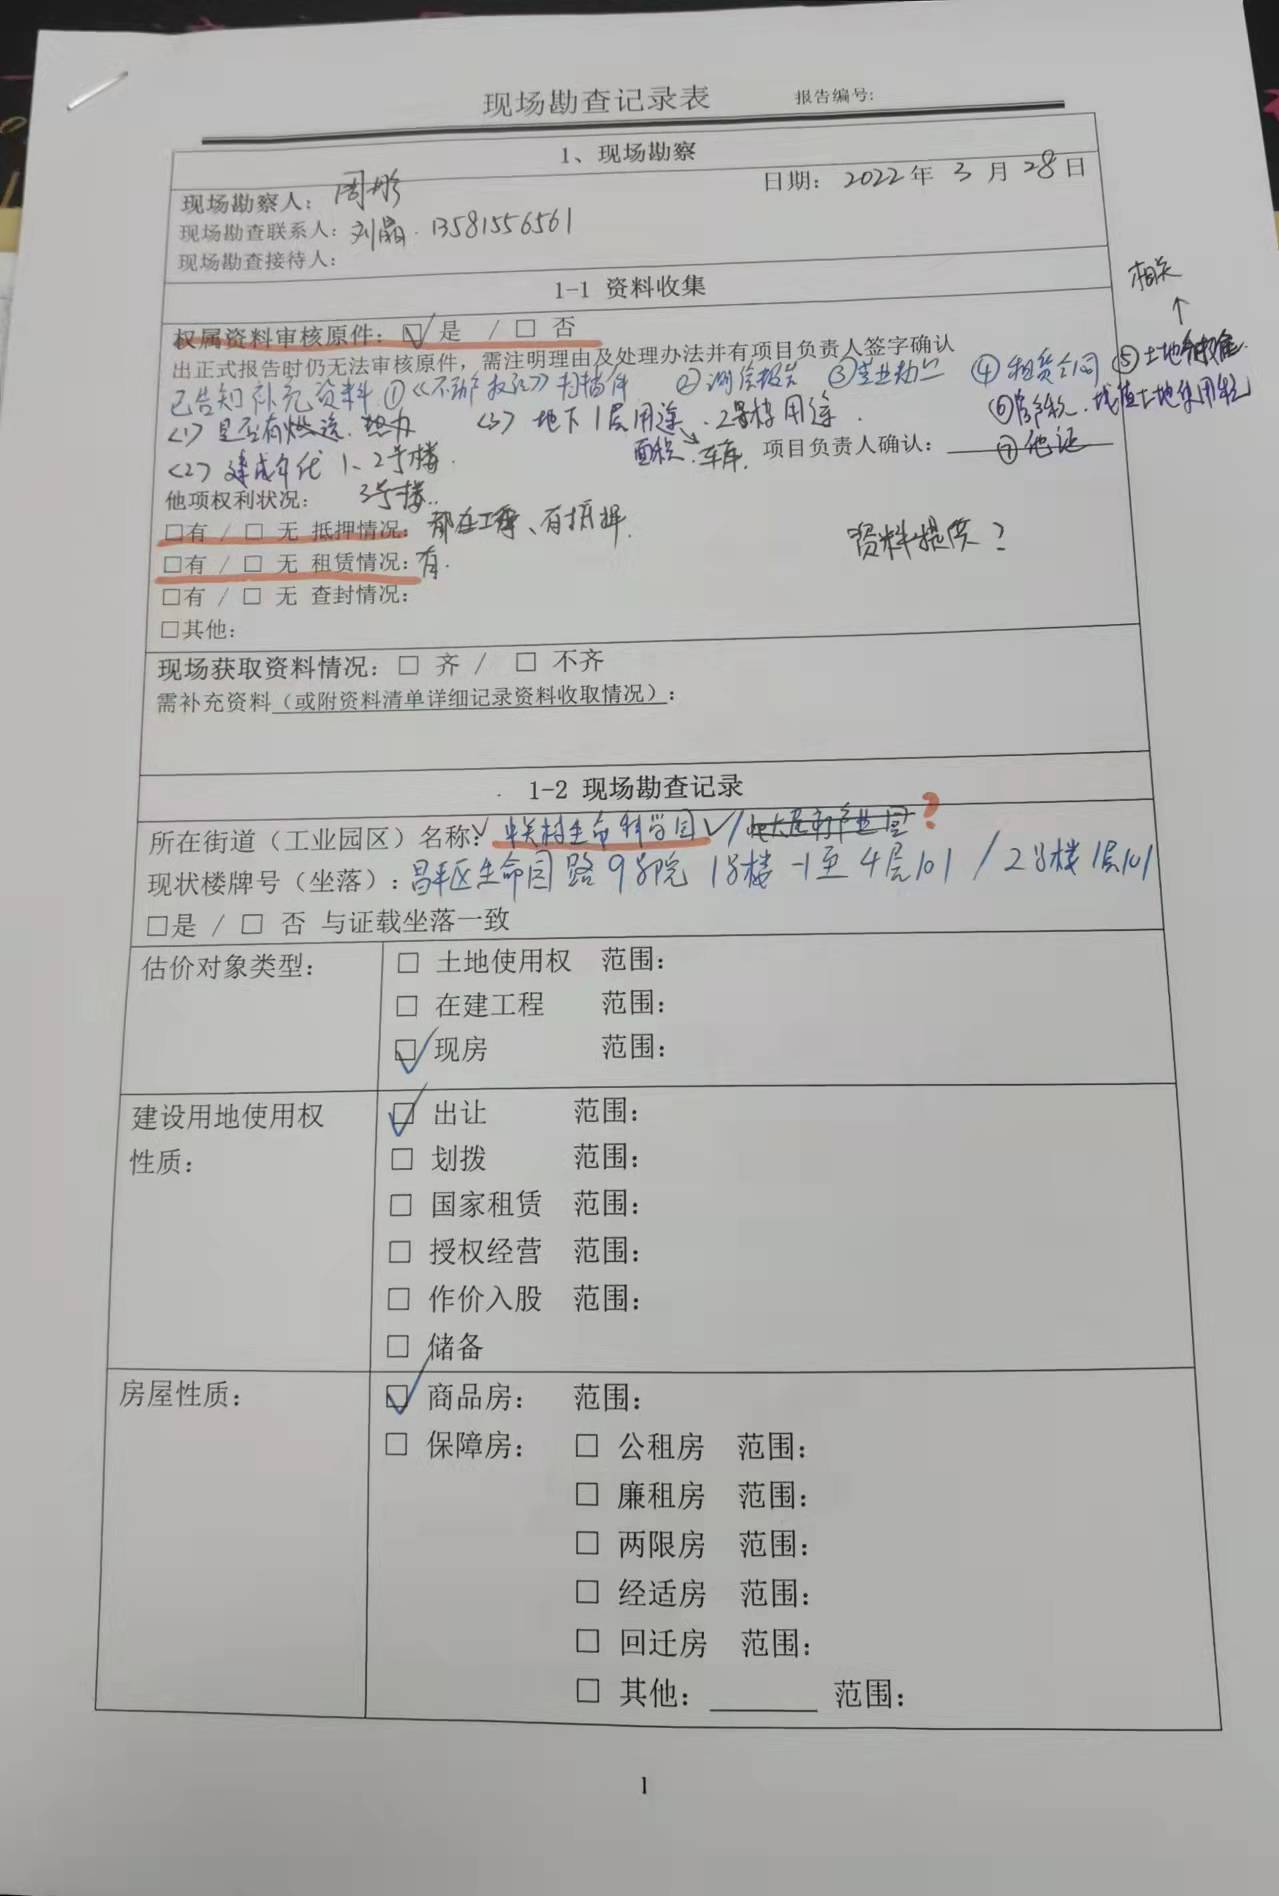 现场勘查记录表 报告编号:
1、现场勘察
现场勘察人: 周彤 日期: 2022年 3 月 28日
现场勘查联系人: 刘晶. 13581556561
现场勘查接待人:
1-1 资料收集
权属资料审核原件: ☑ 是 / □ 否
出正式报告时仍无法审核原件，需注明理由及处理办法并有项目负责人签字确认
相关
↑
已告知补充资料 ①《不动产权证》扫描件 ② 测绘报告 ③营业执照 ④ 租赁合同 ⑤土地
<1> 是否有燃气、热力 <3> 地下1层用途、2号楼用途. ⑥房产税、城镇土地使用税
<2> 建成年代 1、2号楼. 面积、车库. 项目负责人确认: ⑦ 他证
他项权利状况: 3号楼..
□有 / □ 无 抵押情况: 有抵押.
资料提供?
□有 / □ 无 租赁情况: 有.
□有 / □ 无 查封情况:
□其他:
现场获取资料情况: □ 齐 / □ 不齐
需补充资料（或附资料清单详细记录资料收取情况）:
1-2 现场勘查记录
所在街道（工业园区）名称: 中关村生命科学园 / ?
现状楼牌号（坐落）: 昌平区生命园路9号院 1号楼 -1至4层101 / 2号楼1层101
□是 / □ 否 与证载坐落一致
估价对象类型: □ 土地使用权 范围:
□ 在建工程 范围:
☑ 现房 范围:
建设用地使用权 ☑ 出让 范围:
性质: □ 划拨 范围:
□ 国家租赁 范围:
□ 授权经营 范围:
□ 作价入股 范围:
□ 储备
房屋性质: ☑ 商品房: 范围:
□ 保障房: □ 公租房 范围:
□ 廉租房 范围:
□ 两限房 范围:
□ 经适房 范围:
□ 回迁房 范围:
□ 其他: ______ 范围:
1